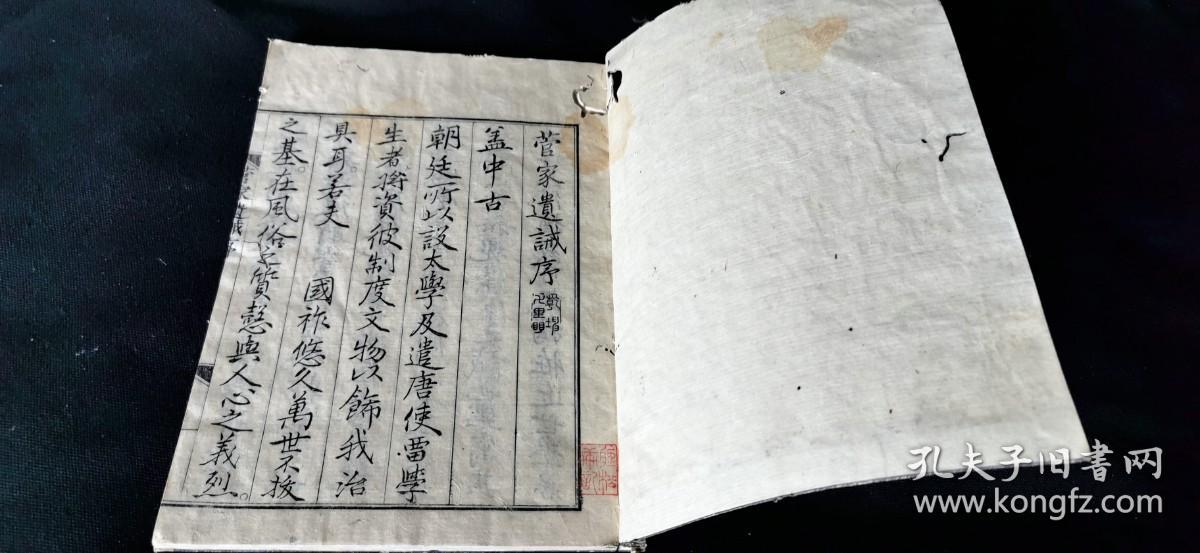 菅家遺誡序
蓋中古
朝廷所以設太學及遣唐使畱學
生者將資彼制度文物以飾我治
具耳。若夫　國祚悠久萬世不拔
之基。在風俗之質愨與人心之義烈。
孔夫子旧书网
www.kongfz.com